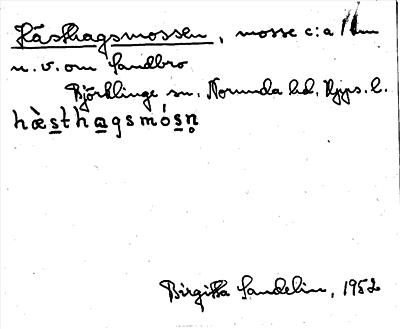 Hästhagsmossen, mosse c:a 1 km
n.v. om Sandbro
Björklinge sn, Norunda hd, Upps. l.
hæ̀sthagsmósn̥
Birgitta Sandelin, 1952